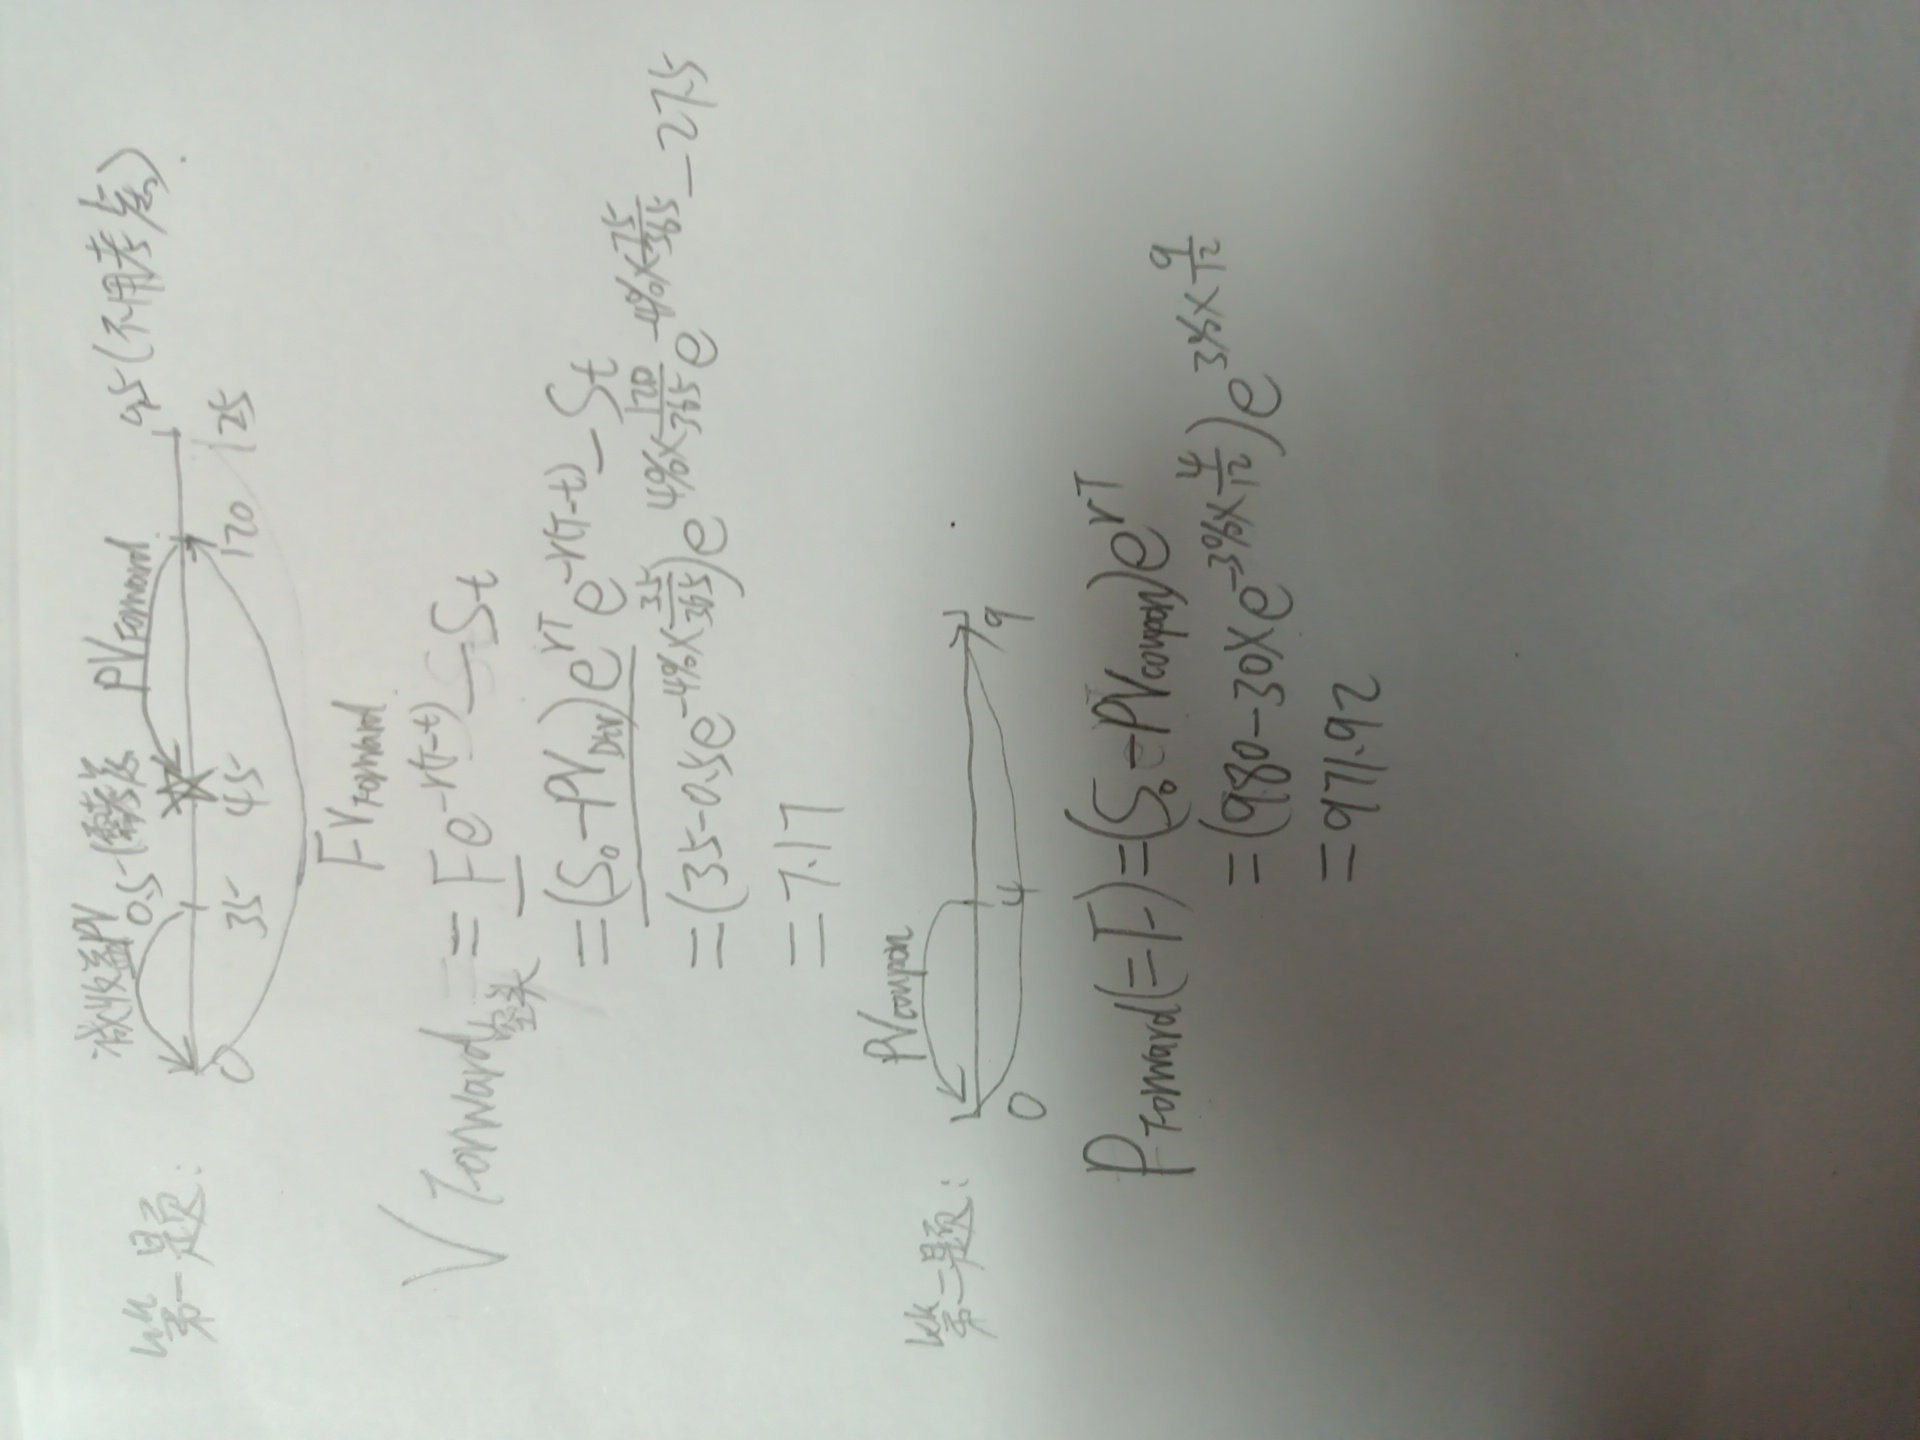 第一题:
减收益PV 0.5(需考虑) PVForward 0.5(不用考虑)
0 35 45 120 125
FVForward
VForward空头 = Fe^-r(T-t) - St
= (S0 - PVDIV)e^rT e^-r(T-t) - St
= (35 - 0.5e^-4%×35/365)e^4%×120/365 e^-4%×75/365 - 27.5
= 7.17
第二题:
PVcoupon
0 4 9
PForward(=T) = (S0 - PVcoupon)e^rT
= (980 - 30×e^-3%×4/12)e^3%×9/12
= 971.92